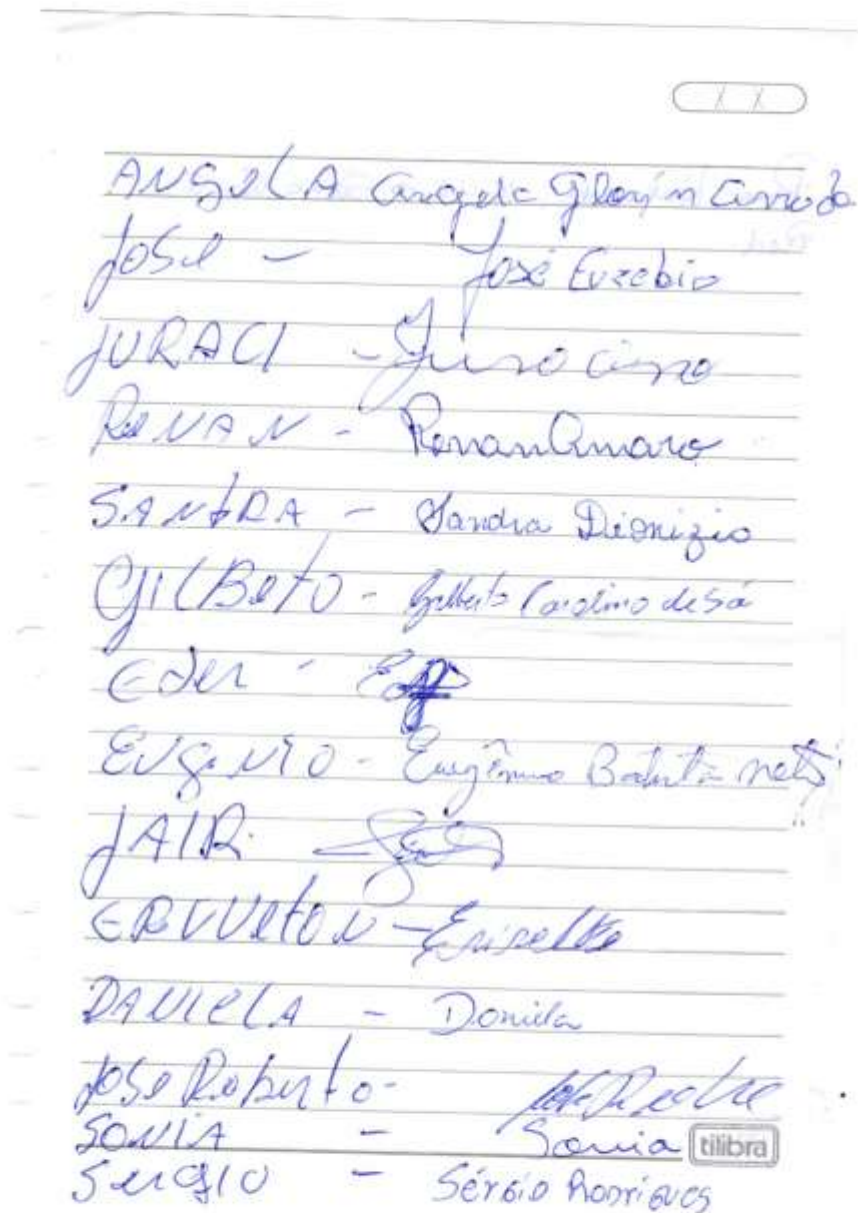 ANGELA Angela Gloria Arruda
JOSE - José Euzebio
JURACI -
RENAN - Renan Amaro
SANDRA - Sandra Dionizio
GILBETO - Gilberto Carolino de Sá
EDER -
EUGENIO - Eugênio Batista Neto
JAIR
-
DANIELA - Daniela
JOSE ROBERTO -
SONIA - Sonia tilibra
SERGIO - Sérgio Rodrigues